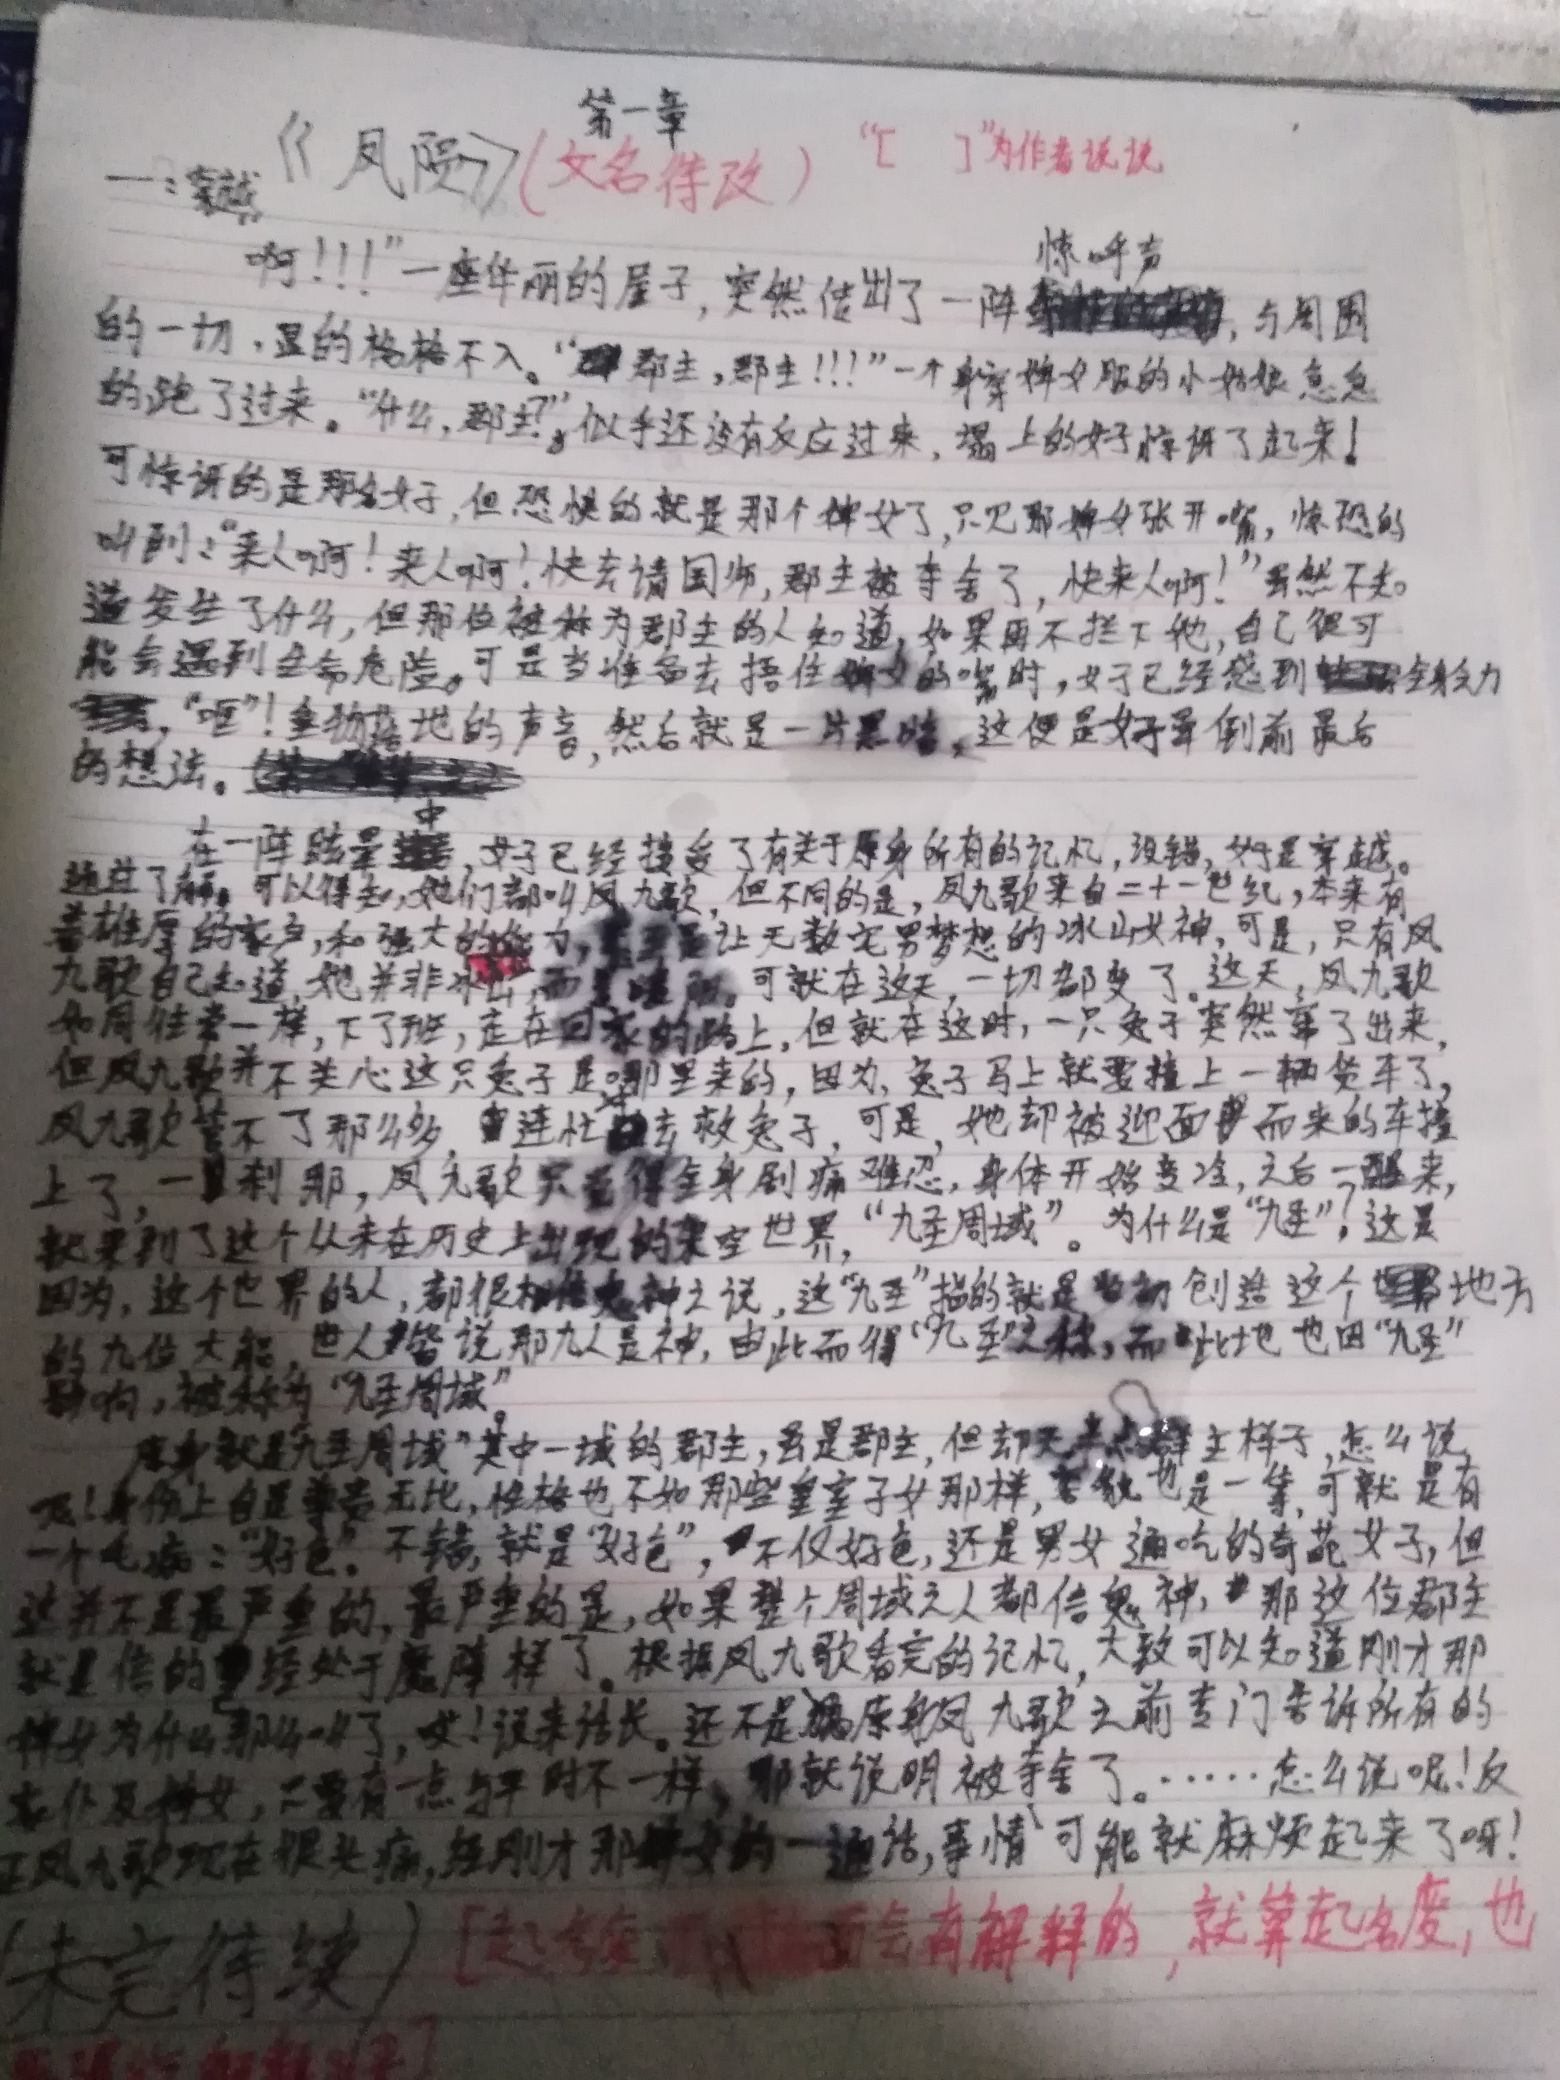 第一章
《凤陨》(文名待改) “[ ]”为作者说说
一:穿越
啊!!!”一座华丽的屋子,突然传出了一阵惊呼声,与周围
的一切,显的格格不入。“郡主,郡主!!!”一个身穿婢女服的小姑娘急急
的跑了过来。“什么,郡主?”似乎还没有反应过来,塌上的女子惊讶了起来!
可惊讶的是那名女子,但恐惧的就是那个婢女了,只见那婢女张开嘴,惊恐的
叫到:“来人啊!来人啊!快去请国师,郡主被夺舍了,快来人啊!”虽然不知
道发生了什么,但那位被称为郡主的人知道,如果再不拦下她,自己很可
能会遇到生命危险。可是当准备去捂住婢女的嘴时,女子已经感到全身乏力
,“哐”!重物落地的声音,然后就是一片黑暗,这便是女子晕倒前最后
的想法。
在一阵眩晕中,女子已经接受了有关于原身所有的记忆,没错,女子是穿越。
通过了解,可以得知,她们都叫凤九歌,但不同的是,凤九歌来自二十一世纪,本来有
着雄厚的家产,和强大的能力,让无数宅男梦想的冰山女神,可是,只有凤
九歌自己知道,她并非冰山,而是。可就在这天,一切都变了。这天,凤九歌
如同往常一样,下了班,走在回家的路上,但就在这时,一只兔子突然窜了出来,
但凤九歌并不关心这只兔子是哪里来的,因为,兔子马上就要撞上一辆货车了,
凤九歌管不了那么多,连忙冲去救兔子,可是,她却被迎面而来的车撞
上了,一刹那,凤九歌只觉得全身剧痛难忍,身体开始变冷,之后一醒来,
就来到了这个从未在历史上出现的架空世界,“九圣周域”。为什么是“九圣”?这是
因为,这个世界的人,都很相信鬼神之说,这“九圣”指的就是当初创造这个地方
的九位大能,世人皆说那九人是神,由此而得“九圣”之称,而此地也因“九圣”
影响,被称为“九圣周域”。
原身就是“九圣周域”其中一域的郡主,虽是郡主,但却无半点郡主样子,怎么说
呢!身份上自是尊贵无比,性格也不如那些皇室子女那样,容貌也是一等,可就是有
一个毛病:“好色”。不错,就是“好色”,不仅好色,还是男女通吃的奇葩女子,但
这并不是最严重的,最严重的是,如果整个周域之人都信鬼神,那这位郡主
就是信的已经处于魔障样了。根据凤九歌看完的记忆,大致可以知道刚才那
婢女为什么那么叫了,哎!说来话长。还不是原身凤九歌之前专门告诉所有的
家仆及婢女,只要有一点与平时不一样,那就说明被夺舍了。……怎么说呢!反
正凤九歌现在很头痛,经刚才那婢女的一通话,事情可能就麻烦起来了呀!
(未完待续) [起名 面会有解释的,就算起名废,也